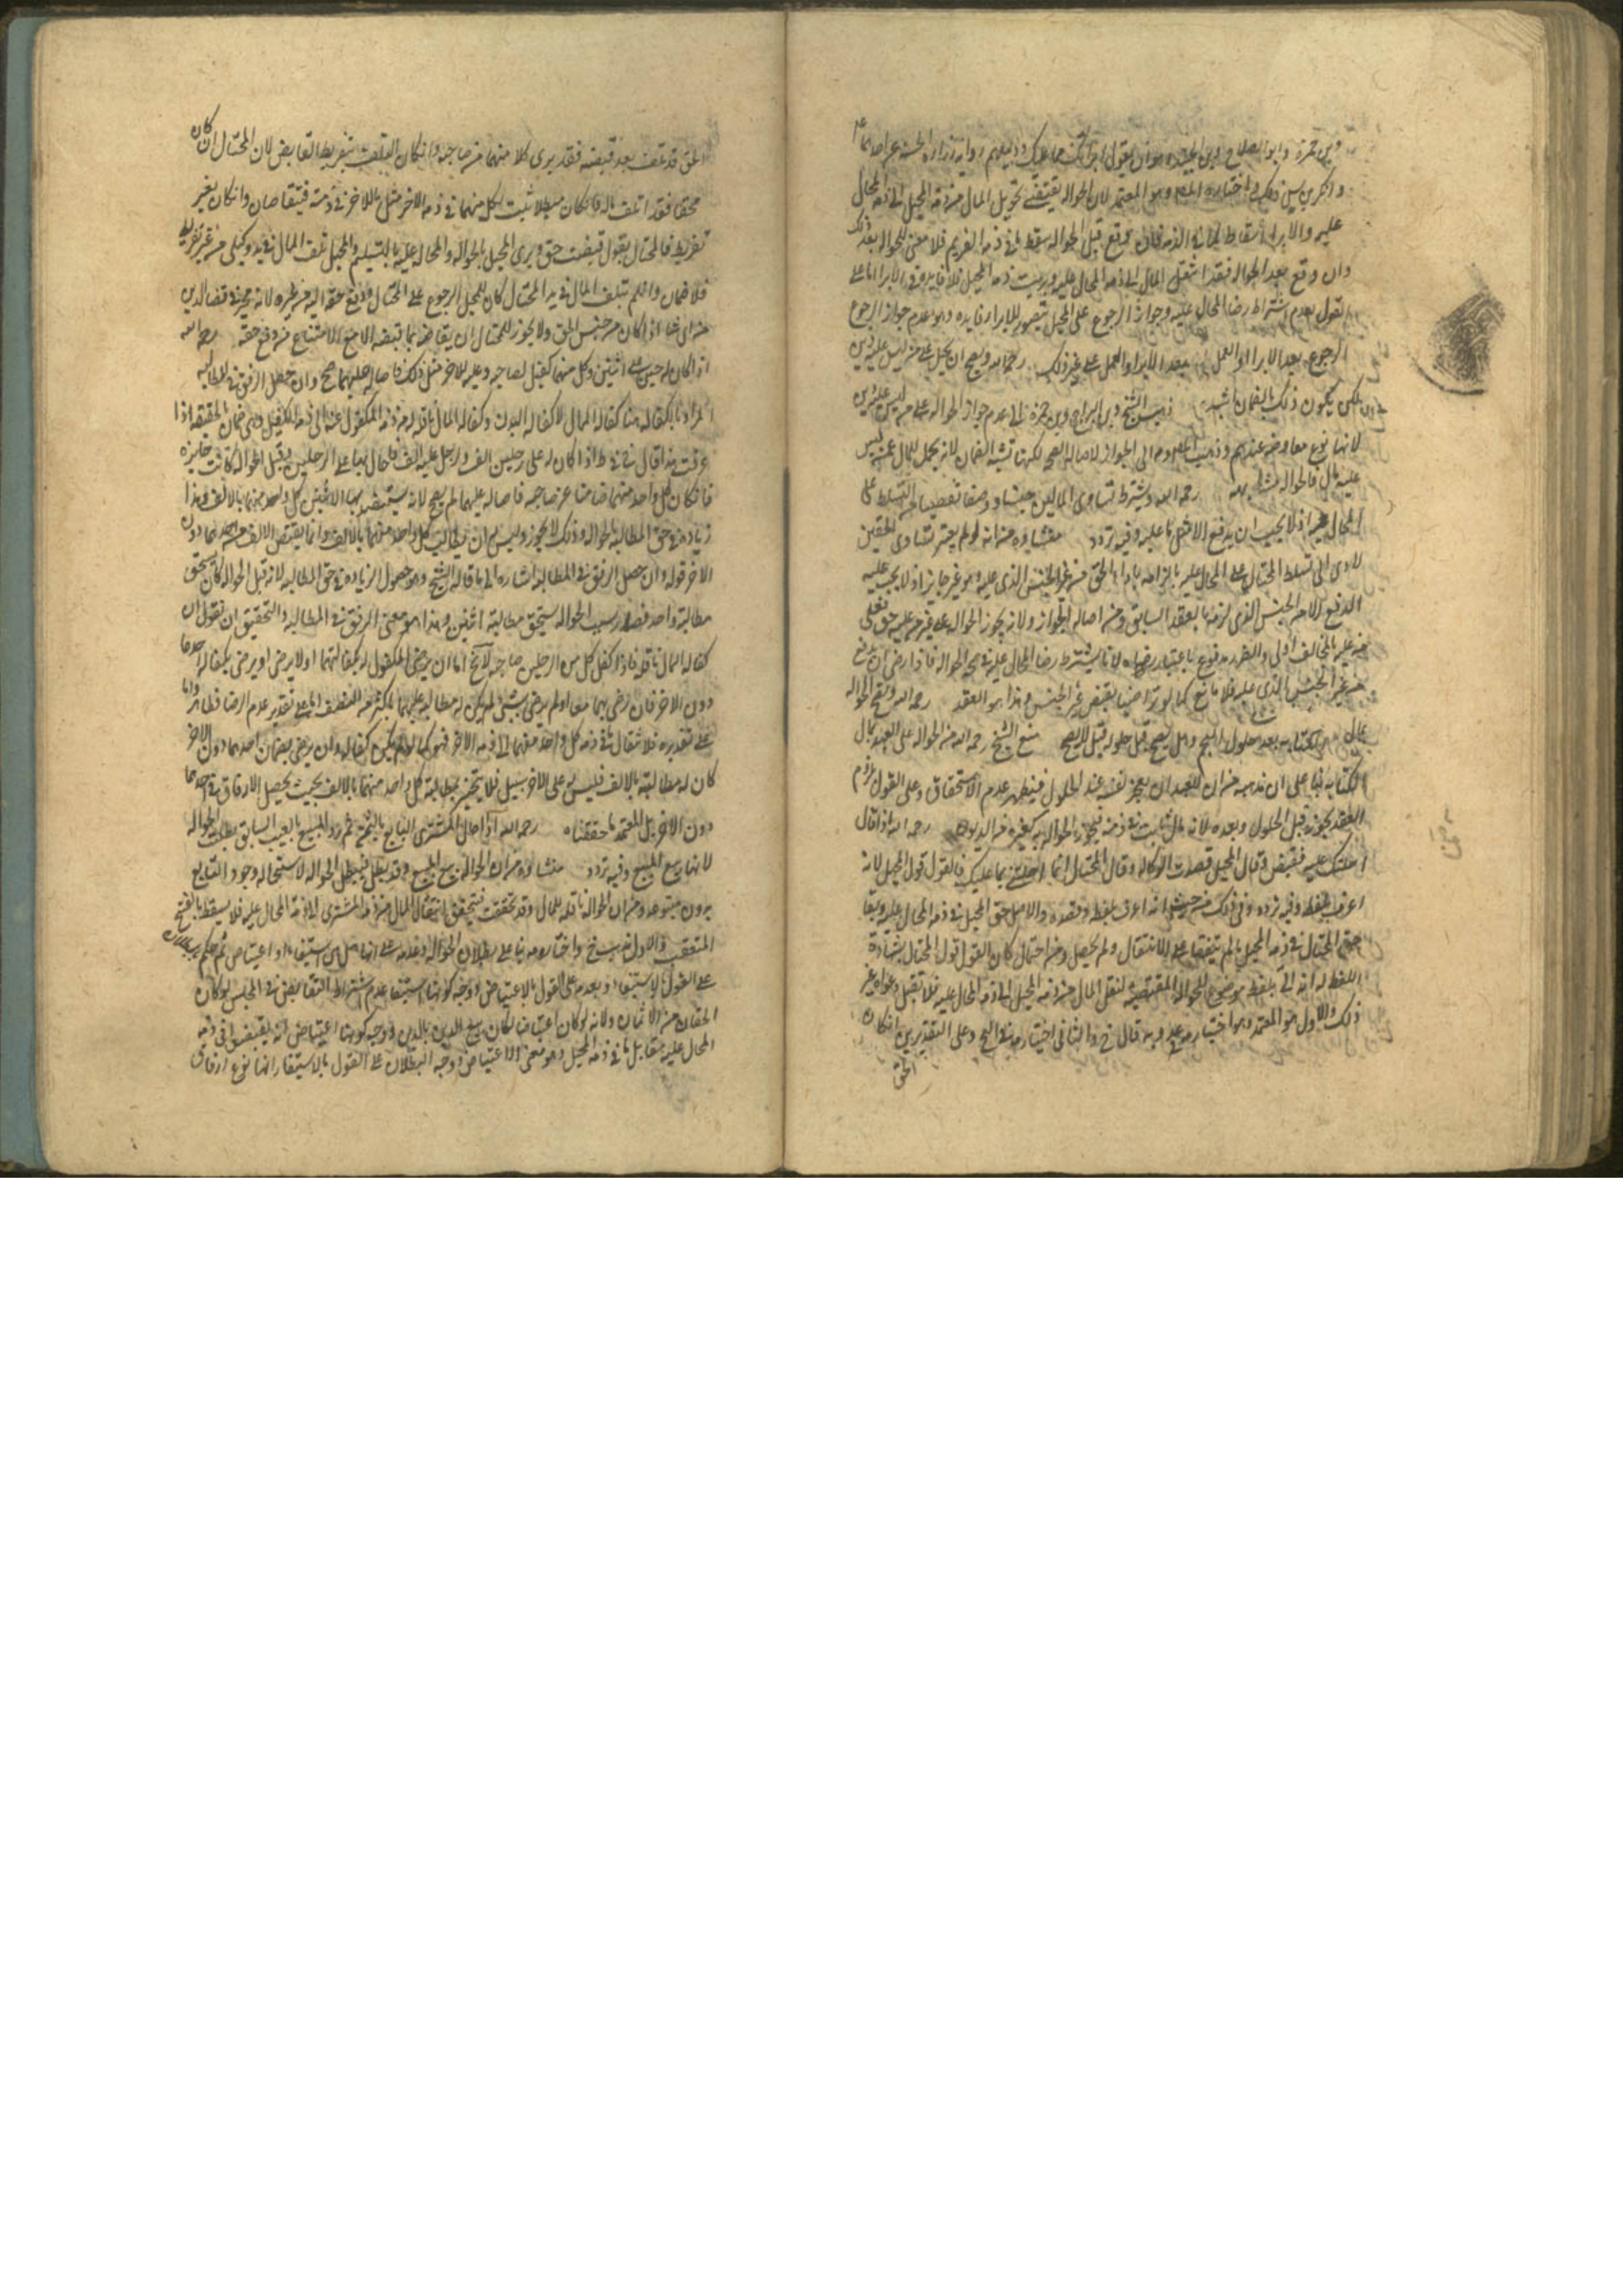 وبن حمزة وابو الصلاح وبن الجنيد وهو ان يقول ابرأتك مما عليك ودليلهم رواية زرارة الحسنة عن احدهما ع
وانكر بن ادريس ذلك واختاره المصنف وهو المعتمد لان الحواله تقتضى تحويل المال من ذمة المحيل الى ذمة المحال
عليه والابراء اسقاط لما فى الذمه فان وقع قبل الحواله سقط ما فى ذمه الغريم فلا معنى للحواله بعد ذلك
وان وقع بعد الحواله فقد انتقل المال الى ذمه المحال عليه وبريت ذمه المحيل فلا فايده فى الابرا اما على
القول بعدم اشتراط رضا المحال عليه وجواز الرجوع على المحيل تتصور للابرا فايده وهو عدم جواز الرجوع
الرجوع بعد الابرا والعمل بعد الابرا والعمل على غير ذلك رحمه الله ويصح ان يحيل على من ليس عليه دين
لكن يكون ذلك بالضمان اشبه ذهب الشيخ وبن البراج وبن حمزة الى عدم جواز الحواله على من ليس عليه دين
لانها نوع معاوضه عندهم وذهب الى الجواز لاصاله الصحه لكنها تشبه الضمان لانه يحمل المال عمن ليس
عليه مال فالحواله رحمه الله ويشترط تساوى المالين جنسا ووصفا تفصيا من التسلط على
المحال عليه اذ لا يجب ان يدفع الا مثل ما عليه وفيه تردد منشاؤه من انه لو لم يعتبر تساوى الحقين
لادى الى تسلط المحتال على المحال عليه بالزامه باداء الحق من غير الجنس الذى عليه وهو غير جايز اذ لا يجب عليه
الدفع الا من الجنس الذى لزمه بالعقد السابق ومن اصاله الجواز ولانه يجوز الحواله على من ليس عليه حق فعلى
من عليه بالمخالف اولى والضرر مدفوع باعتبار رضاه لانا نشترط رضا المحال عليه فى صحه الحواله فاذا رضى ان يدفع
من غير الجنس الذى عليه فلا مانع كما لو تراضيا بقبض غير الجنس وهذا هو المعتمد رحمه الله وتصح الحواله
بمال الكتابه بعد حلول النجم وهل تصح قبل حلوله قيل لا يصح منع الشيخ رحمه الله من الحواله على العبد بمال
الكتابه بناء على ان مذهبه من ان للعبد ان يعجز نفسه عند الحلول فيظهر عدم الاستحقاق وعلى القول بلزوم
العقد يجوز قبل الحلول وبعده لانه مال ثابت فى ذمته فيجوز الحواله به كغيره من الديون رحمه الله اذا قال
احلتك عليه فقبض وقال المحيل قصدت الوكاله وقال المحتال انما احلتنى بما عليك فالقول قول المحيل لانه
اعرف بلفظه وفيه تردد وفى ذلك من حيث انه اعرف بلفظه وقصده والاصل حق المحيل فى ذمه المحال عليه وبقا
حق المحتال فى ذمه المحيل ما لم يتيقنا الانتقال ولم يحصل ومن احتمال كان القول قول المحتال بشهادة
اللفظ له انه اتى بلفظ موضوع للحواله المقتضيه لنقل المال من ذمه المحيل الى ذمه المحال عليه فلا تقبل دعواه غير
ذلك والاول هو المعتمد وهو اختيار وبه قال والثانى اختيار وعلى التقديرين ان كان
الحق

الحق قد تلف بعد قبضه فقد برى كلا منهما من صاحبه وان كان التلف بتفريط القابض لان المحتال ان كان
محقا فقد اتلف ماله وان كان مبطلا ثبت لكل منهما فى ذمه الاخر مثل ما للاخر فى ذمته فيتقاصان وان كان بغير
تفريط فالمحتال يقول قبضت حقى وبرى المحيل بالحواله والمحال عليه بالتسليم والمحيل تلف المال فى يد وكيلى من غير تفريط
فلا ضمان وان لم يتلف المال فى يد المحتال كان للمحيل الرجوع على المحتال ودفع حقه اليه من غيره لانه مخير فى قضا الدين
من اى اذا كان من جنس الحق ولا يجوز للمحتال ان يقاصه بما قبضه الا مع الامتناع من دفع حقه رحمه الله
اذا كان له دين على اثنين وكل منهما كفيل لصاحبه وعليه للاخر مثل ذلك فاحاله عليهما صح وان حصل الرفق فى المطالبه
المراد بالكفاله هنا كفاله المال لا كفاله البدن وكفاله المال ناقله من ذمه المكفول عنه الى ذمه الكفيل وهى ضمان الحقيقه اذا
عرفت هذا قال فى ط اذا كان له على رجلين الف ولرجل عليه الف فاحال بها على الرجلين وقبل الحواله كانت جايزه
فان كان كل واحد منهما ضامنا عن صاحبه فاحاله عليهما لم يصح لانه يستفيد بها الاثنين كل واحد منهما بالالف وهذا
زياده فى حق المطالبه بالحواله وذلك لا يجوز وليس له ان يطالب كل واحد منهما بالالف وانما يقبض الالف من احدهما دون
الاخر قوله وان حصل الرفق فى المطالبه اشاره الى ما قاله الشيخ وهو حصول الزياده فى حق المطالبه لانه قبل الحواله كان يستحق
مطالبة واحد فصار بسبب الحواله يستحق مطالبة اثنين وهذا هو معنى الرفق فى المطالبه والتحقيق ان نقول ان
كفاله المال ناقله فاذا كفل كل من الرجلين صاحبه لا يخ اما ان يرضى المكفول له بكفالتهما او لا يرضى او يرضى بكفاله احدهما
دون الاخر فان رضى بهما معا او لم يرض بشى لم يكن له مطالبه عليهما باكثر من النصف اما على تقدير عدم الرضا فظاهر واما
على تقديره فلانتقال ما فى ذمه كل واحد منهما الى ذمه الاخر فهو كما لو لم يكن كفاله وان رضى بضمان احدهما دون الاخر
كان له مطالبته بالالف فليس على الاخر سبيل فلا يتخير بمطالبة كل واحد منهما بالالف بحيث يحصل الارفاق فى احدهما
دون الاخر بل المعتمد ما حققناه رحمه الله اذا احال المشترى البايع بالثمن ثم رد المبيع بالعيب السابق بطلت الحواله
لانها تبع البيع وفيه تردد منشاؤه من ان الحواله تبع البيع وقد بطل فيبطل الحواله لاستحاله وجود التابع
بدون متبوعه ومن ان الحواله ناقله للمال وقد تحققت فتحقق انتقال المال من ذمه المشترى الى ذمه المحال عليه فلا يسقط بالفسخ
المتعقب والاول مذهب الشيخ واختاره بنا على بطلان الحواله وعدمه على انها هل هى استيفاء او اعتياض ثم حكم ببطلان
على القول بالاستيفاء وبعدمه على القول بالاعتياض ووجه كونها استيفا عدم اشتراط التقابض فى المجلس لو كان
الحقان من الاثمان ولانه لو كان اعتياضا لكان بيع الدين بالدين ووجه كونها اعتياضا انه يقبض ما فى ذمه
المحال عليه مقابل ما فى ذمه المحيل وهو معنى الاعتياض ووجه البطلان على القول بالاستيفا انها نوع ارفاق